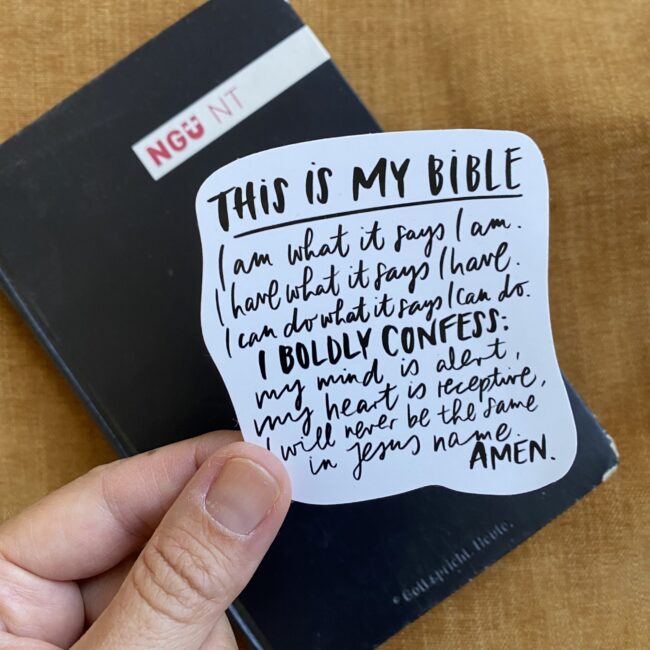 NGÜ NT
THIS IS MY BIBLE
I am what it says I am.
I have what it says I have.
I can do what it says I can do.
I BOLDLY CONFESS:
my mind is alert,
my heart is receptive,
I will never be the same
in Jesus name.
AMEN.
Gott spricht. Heute.